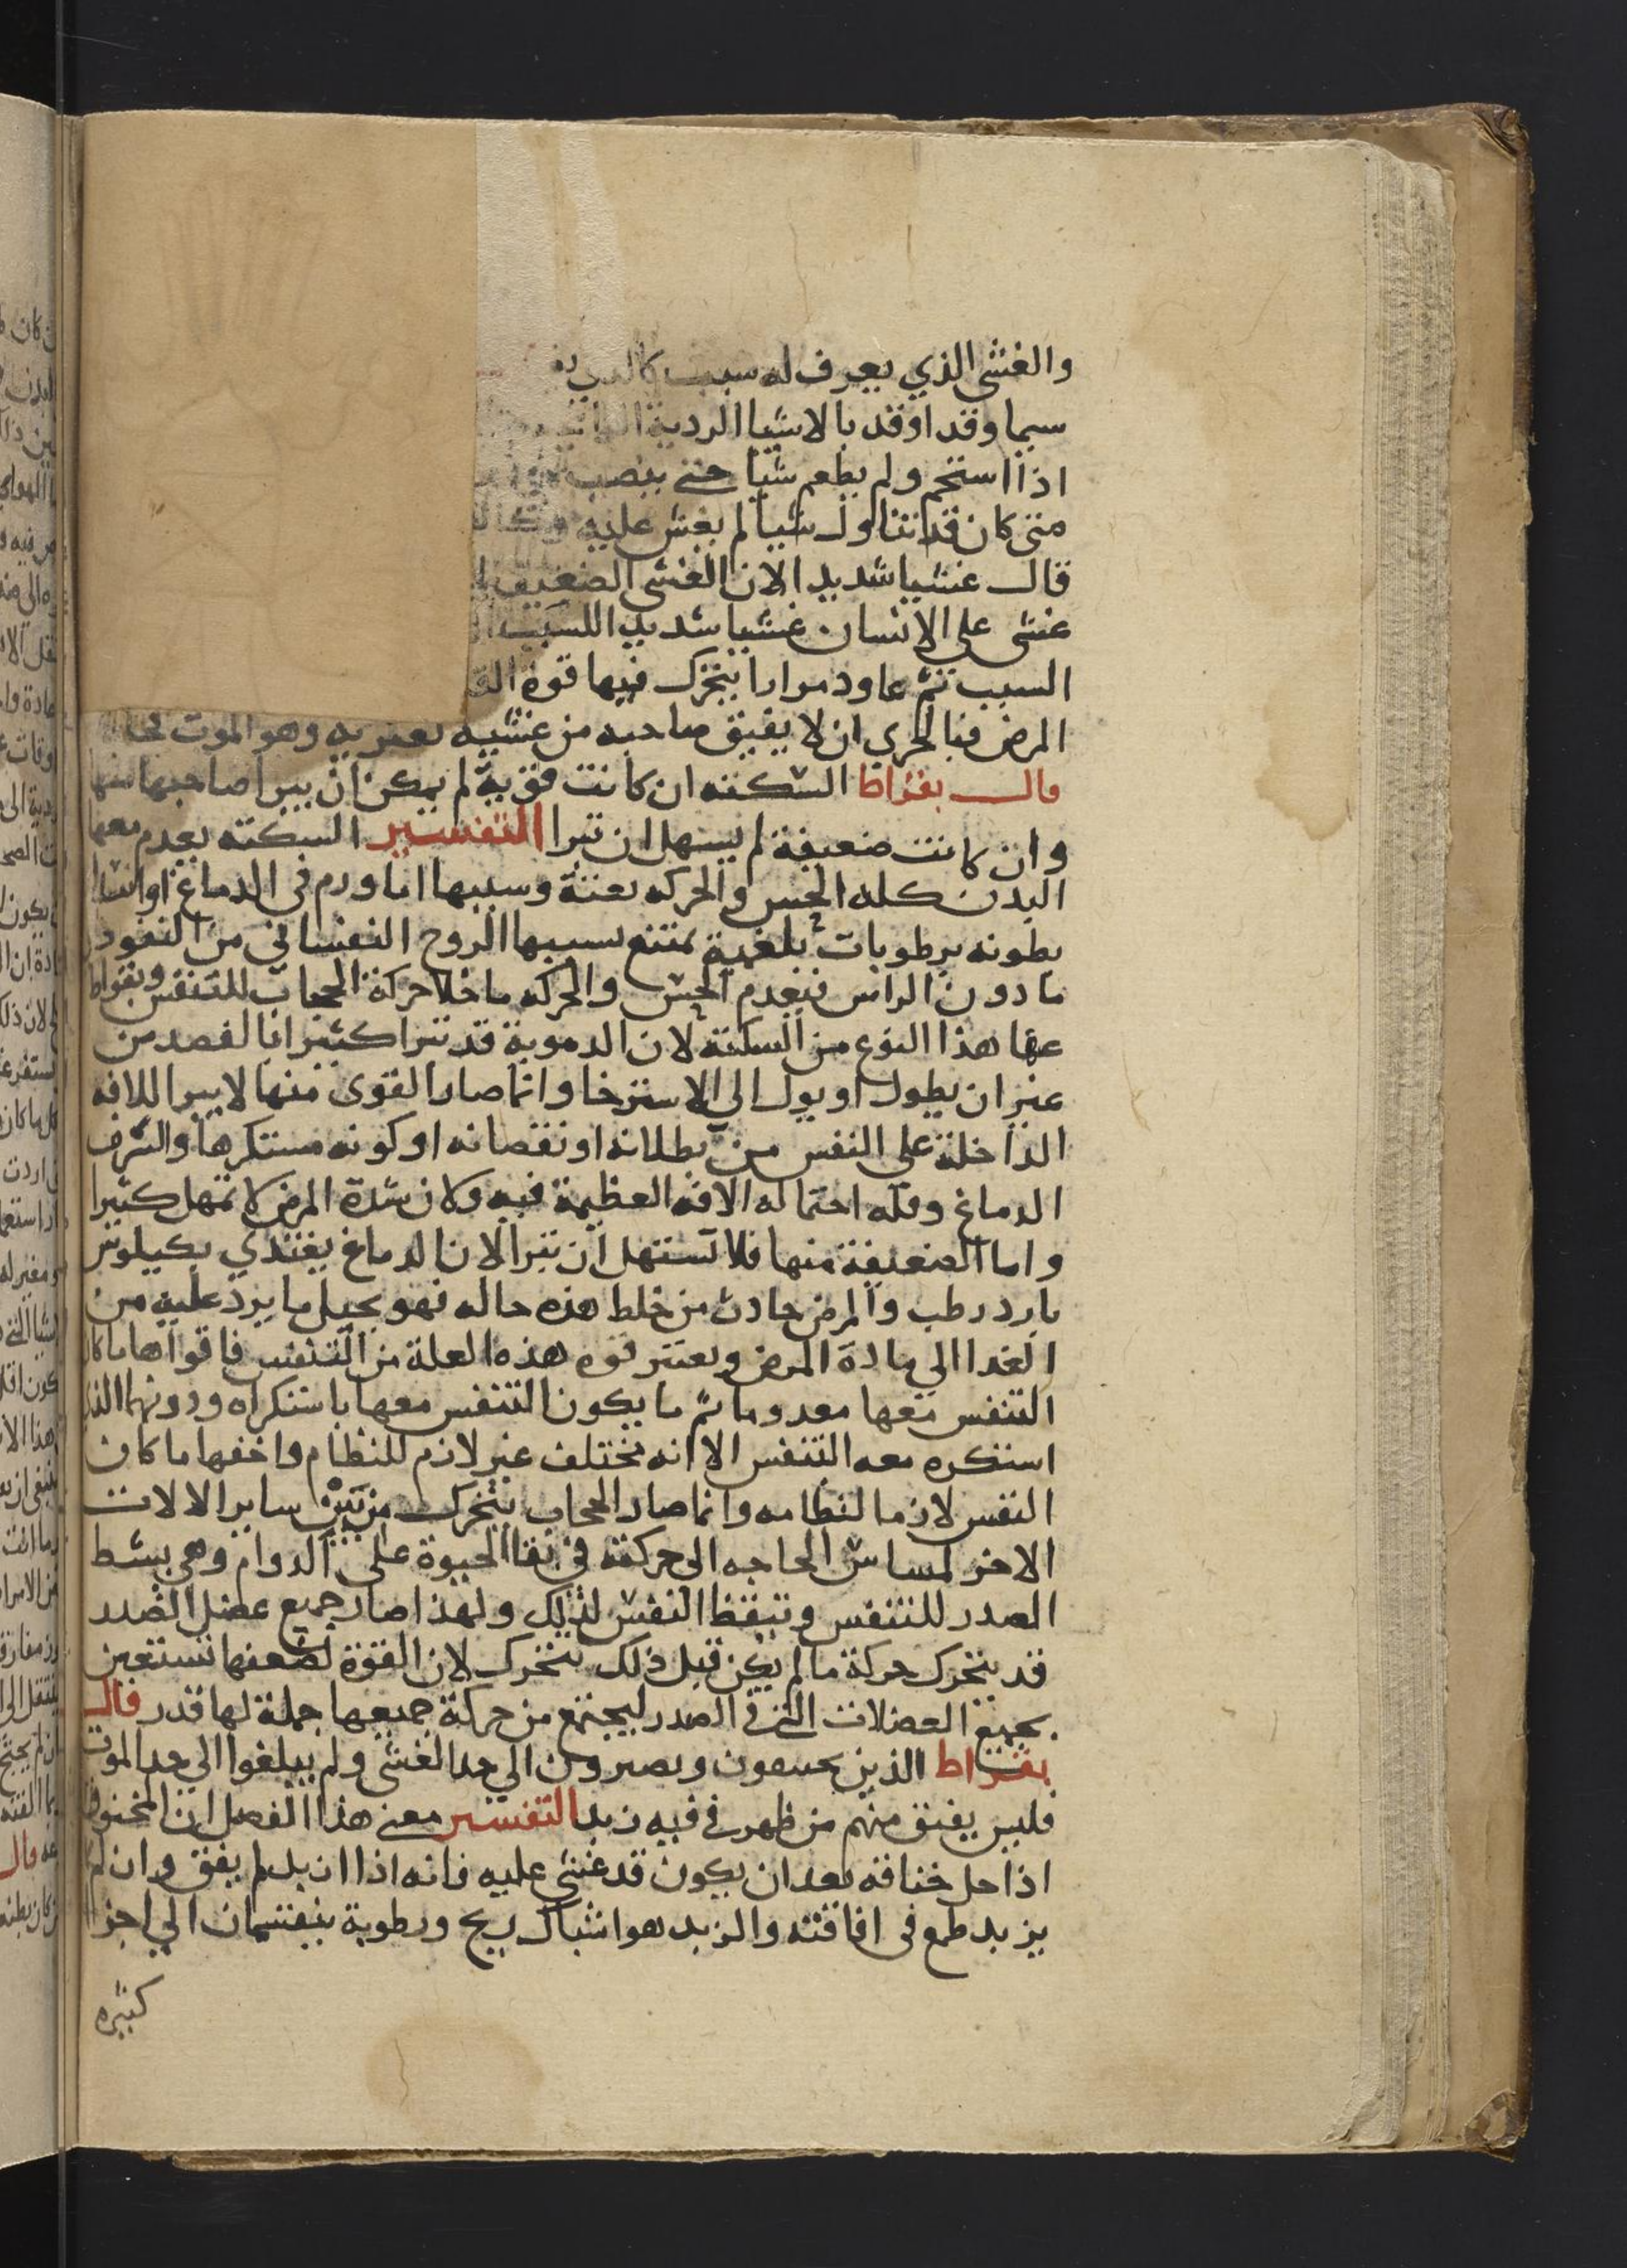 والغشي الذي يعرف له سبب
سيما وقد اوقد بالاشيا الردية
اذا استحم ولم يطعم شيا حتى ينصب
متى كان قد تناول شيا لم يغش عليه
قال غشيا شديدا لان الغشي الضعيف
غشى على الانسان غشيا شديدا لسبب
السبب ثم عاود مرارا يتحرك فيها قوة
المرض فبالحري ان لا يفيق صاحبه من غشيه يعتريه وهو الموت
قال بقراط السكته ان كانت قوية لم يمكن ان يبرا صاحبها منها
وان كانت ضعيفة لم يسهل ان تبرا التفسير السكته يعدم معها
البدن كله الحس والحركه بغتة وسببها اما ورم في الدماغ او امتلا
بطونه برطوبات بلغمية يمتنع بسببها الروح النفساني من النفود
ما دون الراس فيعدم الحس والحركه ما خلا حركة الحجاب للتنفس وبقراط
عنا هذا النوع من السكتة لان الدموية قد تبرا كثيرا بالفصد من
غير ان يطول او يول الي الاسترخا وانما صار القوى منها لا يبرا للافه
الداخلة على النفس من بطلانه او نقصانه او كونه مستكرها والشرف
الدماغ وقله احتماله الافه العظيمة فيه ولان شدة المرض لا تمهل كثيرا
واما الضعيفة منها فلا تستهل ان تبرا لان الدماغ يغتدي بكيلوس
بارد رطب والمرض حادث من خلط هذه حاله فهو يحيل ما يرد عليه من
الغدا الي مادة المرض ويعتبر قوه هذه العلة من التنفس فاقواها ما كان
التنفس معها معدوما ثم ما يكون التنفس معها باستكراه ودونهما الذي
استكره معه التنفس الا انه مختلف غير لازم للنظام واخفها ما كان
النفس لازما لنظامه وانما صار الحجاب يتحرك من بين ساير الالات
الاخر لمساس الحاجه الى حركته في بقا الحيوة على الدوام وهي بسط
الصدر للتنفس وتيقظ النفس لذلك ولهذا صار جميع عضل الصدر
قد يتحرك حركة ما لم يكن قبل ذلك يتحرك لان القوة لضعفها تستعين
بجميع العضلات التي في الصدر ليجتمع من حركة جميعها جملة لها قدر قال
بقراط الذين يخنقون ويصيرون الي حد الغشي ولم يبلغوا الي حد الموت
فليس يفيق منهم من ظهر في فيه زبد التفسير معنى هذا الفصل ان المخنوق
اذا حل خناقه بعد ان يكون قد غشي عليه فانه اذا ازبد لم يفق وان لم
يزبد طمع في افاقته والزبد هو اشباك ريح ورطوبة ينقسمان الي اجزا
كثيره